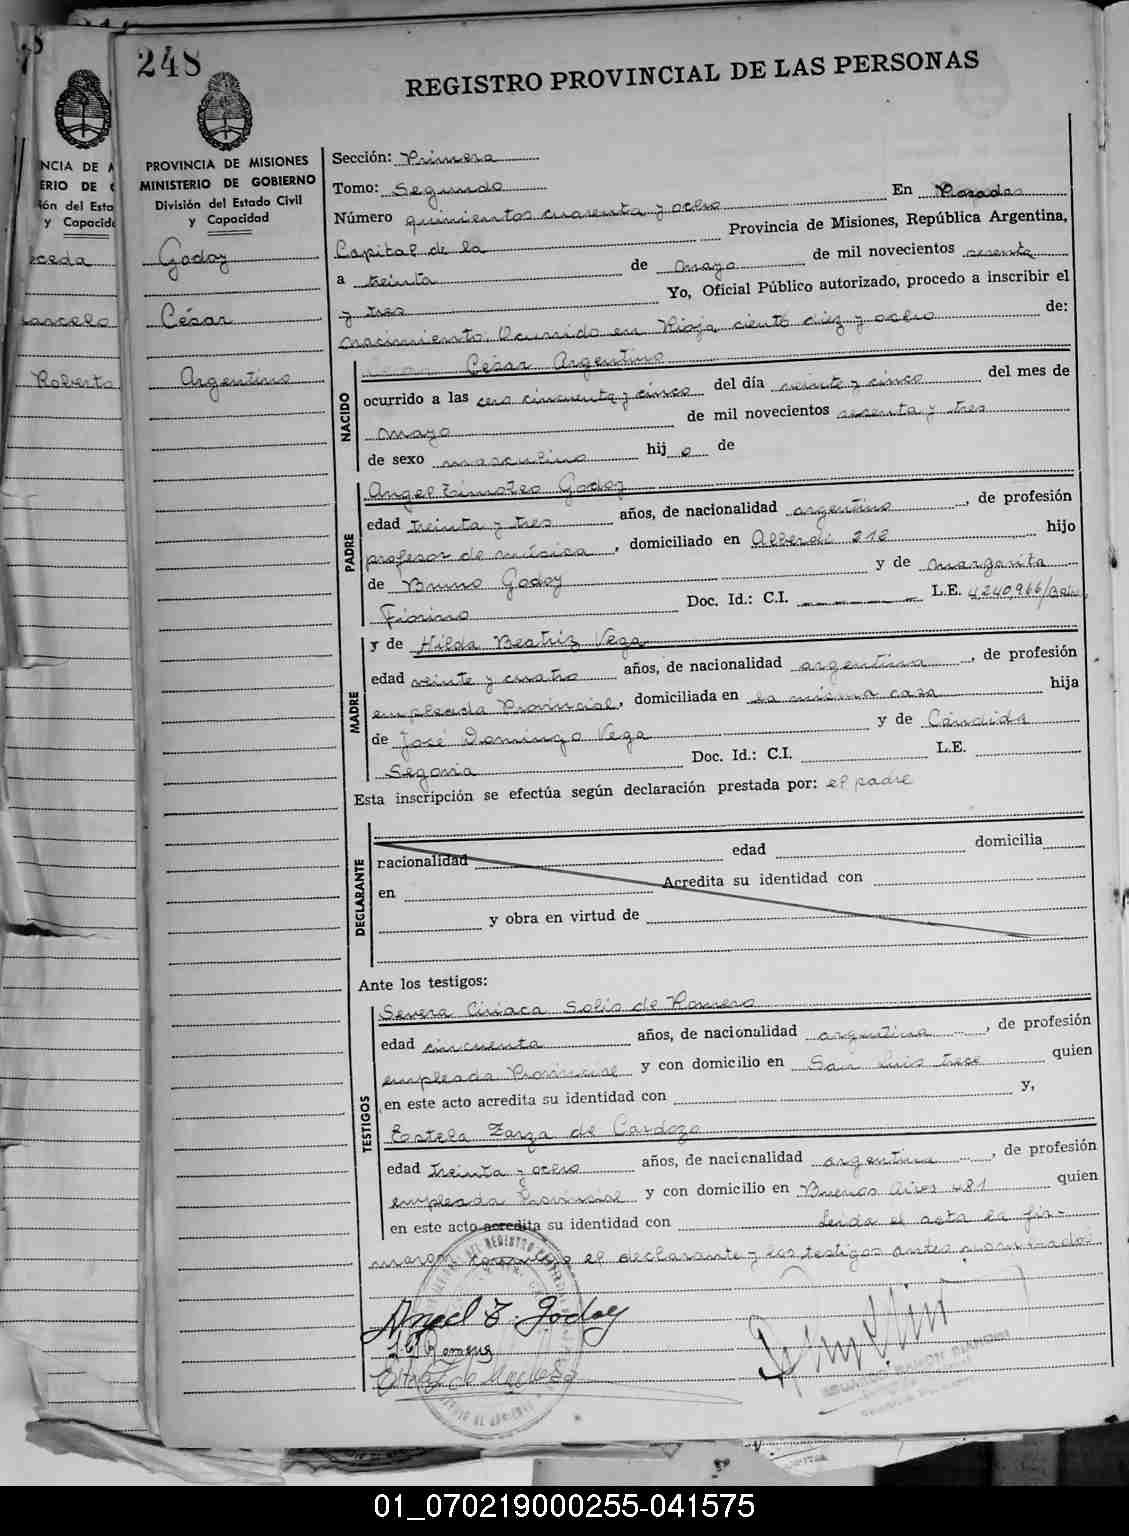 248
REGISTRO PROVINCIAL DE LAS PERSONAS
PROVINCIA DE MISIONES
MINISTERIO DE GOBIERNO
División del Estado Civil
y Capacidad
Godoy
César
Argentino
NCIA DE
ERIO DE
ión del Esta
y Capacid
Roberto
Sección: Primera
Tomo: Segundo
Número quinientos cuarenta y ocho En Posadas
Capital de la Provincia de Misiones, República Argentina,
a treinta de mayo de mil novecientos sesenta
y tres Yo, Oficial Público autorizado, procedo a inscribir el
nacimiento. Ocurrido en Rioja ciento diez y ocho de:
NACIDO
César Argentino
ocurrido a las cero cincuenta y cinco del día veinte y cinco del mes de
mayo de mil novecientos sesenta y tres
de sexo masculino hijo de
PADRE
Angel Timoteo Godoy
edad treinta y tres años, de nacionalidad argentino, de profesión
profesor de música, domiciliado en Alberdi 218 hijo
de Bruno Godoy y de Margarita
Fiorino Doc. Id.: C.I. L.E. 4240966
MADRE
y de Hilda Beatriz Vega
edad veinte y cuatro años, de nacionalidad argentina, de profesión
empleada Provincial, domiciliada en la misma casa hija
de José Domingo Vega y de Cándida
Segovia Doc. Id.: C.I. L.E.
Esta inscripción se efectúa según declaración prestada por: el padre
DECLARANTE
nacionalidad edad domicilia
en Acredita su identidad con
y obra en virtud de
Ante los testigos:
TESTIGOS
Severa Ciriaca Solis de Romero
edad cincuenta años, de nacionalidad argentina, de profesión
empleada Provincial y con domicilio en San Luis trece quien
en este acto acredita su identidad con y,
Estela Zarza de Cardozo
edad treinta y ocho años, de nacionalidad argentina, de profesión
empleada Provincial y con domicilio en Buenos Aires 481 quien
en este acto acredita su identidad con Leida el acta la fir-
maron conmigo el declarante y los testigos antes nombrados
Angel T. Godoy
01_070219000255-041575